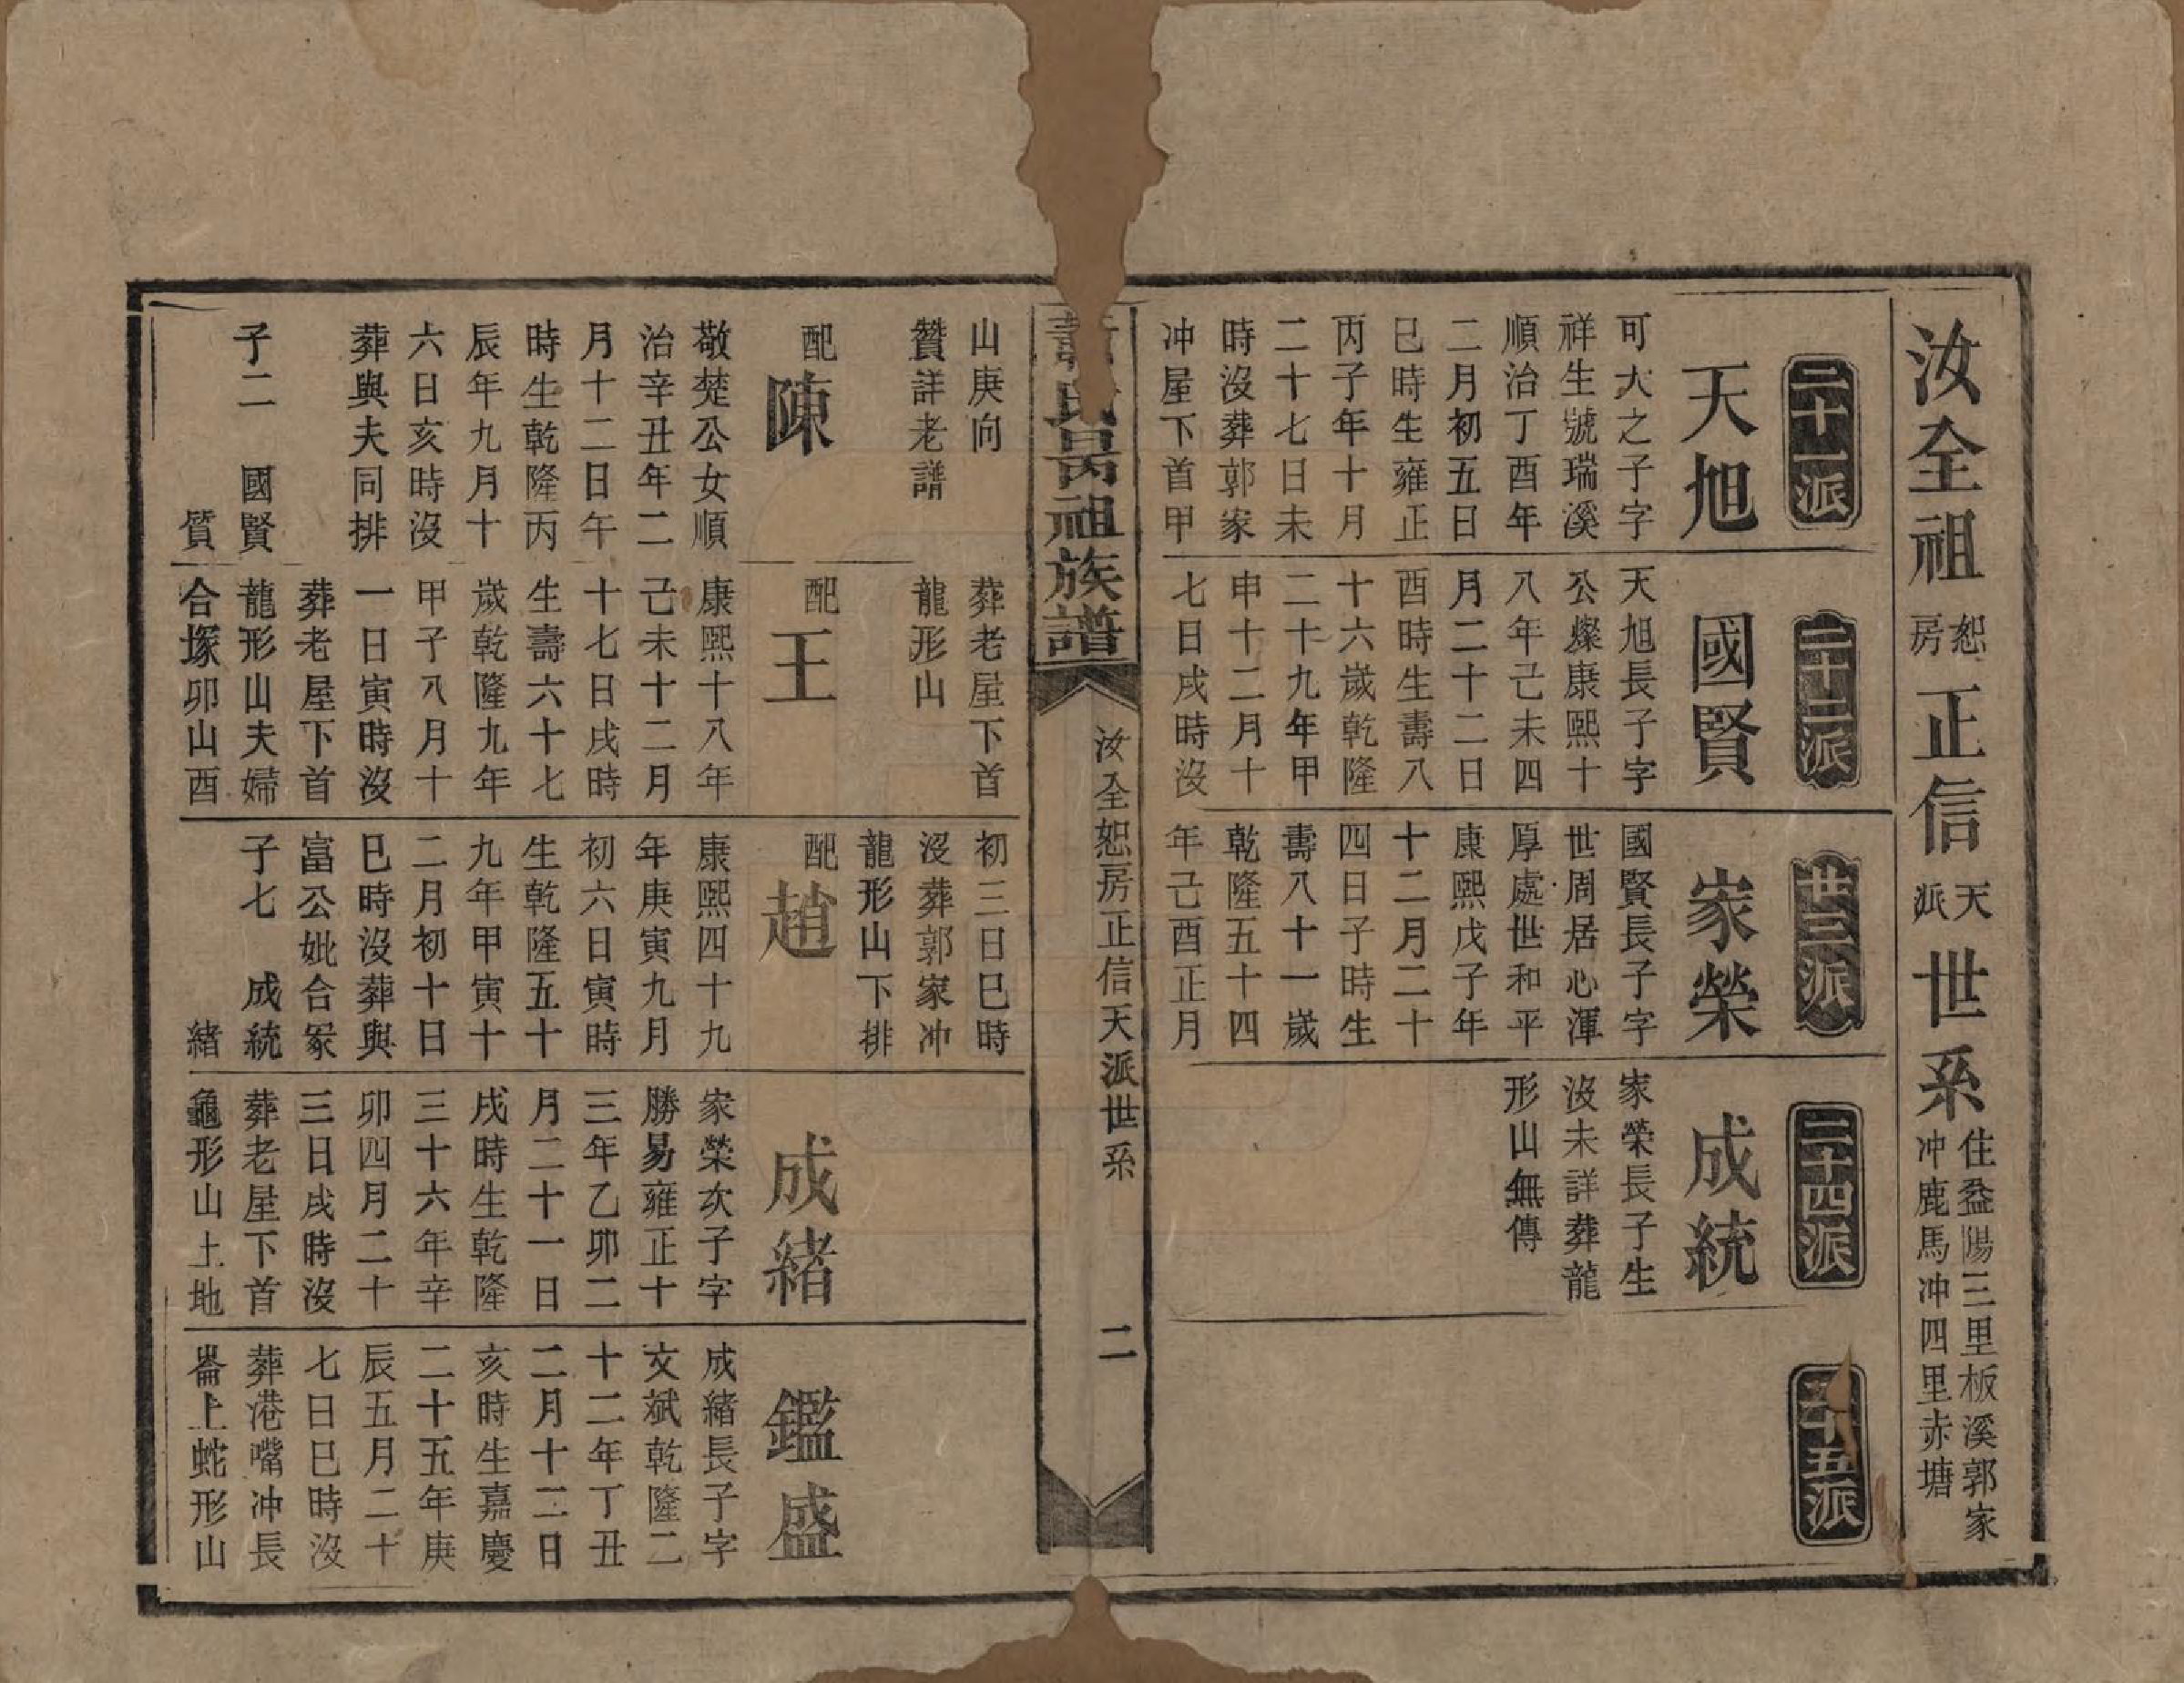 汝全祖恕房正信天派世系住益陽三里板溪郭家冲鹿馬冲四里赤塘
二十一派
天旭
可大之子字
祥生號瑞溪
順治丁酉年
二月初五日
巳時生雍正
丙子年十月
二十七日未
時沒葬郭家
冲屋下首甲
二十二派
國賢
天旭長子字
公燦康熙十
八年己未四
月二十二日
酉時生壽八
十六歲乾隆
二十九年甲
申十二月十
七日戌時沒
廿三派
家榮
國賢長子字
世周居心渾
厚處世和平
康熙戊子年
十二月二十
四日子時生
壽八十一歲
乾隆五十四
年己酉正月
二十四派
成統
家榮長子生
沒未詳葬龍
形山無傳
二十五派
蕭氏昺祖族譜
汝全恕房正信天派世系
二
山庚向
贊詳老譜
配陳
敬楚公女順
治辛丑年二
月十二日午
時生乾隆丙
辰年九月十
六日亥時沒
葬與夫同排
子二 國賢
質
葬老屋下首
龍形山
配王
康熙十八年
己未十二月
十七日戌時
生壽六十七
歲乾隆九年
甲子八月十
一日寅時沒
葬老屋下首
龍形山夫婦
合塚卯山酉
初三日巳時
沒葬郭家冲
龍形山下排
配趙
康熙四十九
年庚寅九月
初六日寅時
生乾隆五十
九年甲寅十
二月初十日
巳時沒葬與
富公妣合冢
子七 成統
緒
成緒
家榮次子字
勝易雍正十
三年乙卯二
月二十一日
戌時生乾隆
三十六年辛
卯四月二十
三日戌時沒
葬老屋下首
龜形山土地
鑑盛
成緒長子字
文斌乾隆二
十二年丁丑
二月十二日
亥時生嘉慶
二十五年庚
辰五月二十
七日巳時沒
葬港嘴冲長
崙上蛇形山